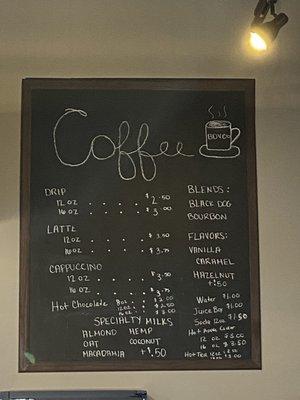 Coffee
BDVCO
DRIP
12 OZ . . . . $2.50
16 OZ . . . . $3.00
LATTE
12OZ . . . . $3.50
16 OZ . . . . $3.75
CAPPUCCINO
12 OZ . . . . $3.50
16 OZ. . . . . $3.75
Hot Chocolate 8oz $2.00
12 oz $2.50
16 oz $3.00
SPECIALTY MILKS
ALMOND HEMP
OAT COCONUT
MACADAMIA +$1.50
BLENDS:
BLACK DOG
BOURBON
FLAVORS:
VANILLA
CARAMEL
HAZELNUT
+$.50
Water $1.00
Juice Box $1.00
Soda 12oz $1.50
Hot Apple Cider
12 OZ $3.00
16 OZ $3.50
HOT TEA 12oz
16oz